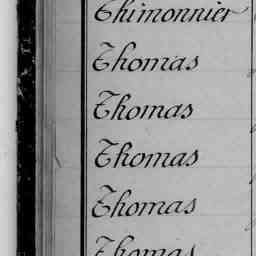 Thimonnier
Thomas
Thomas
Thomas
Thomas
Thomas